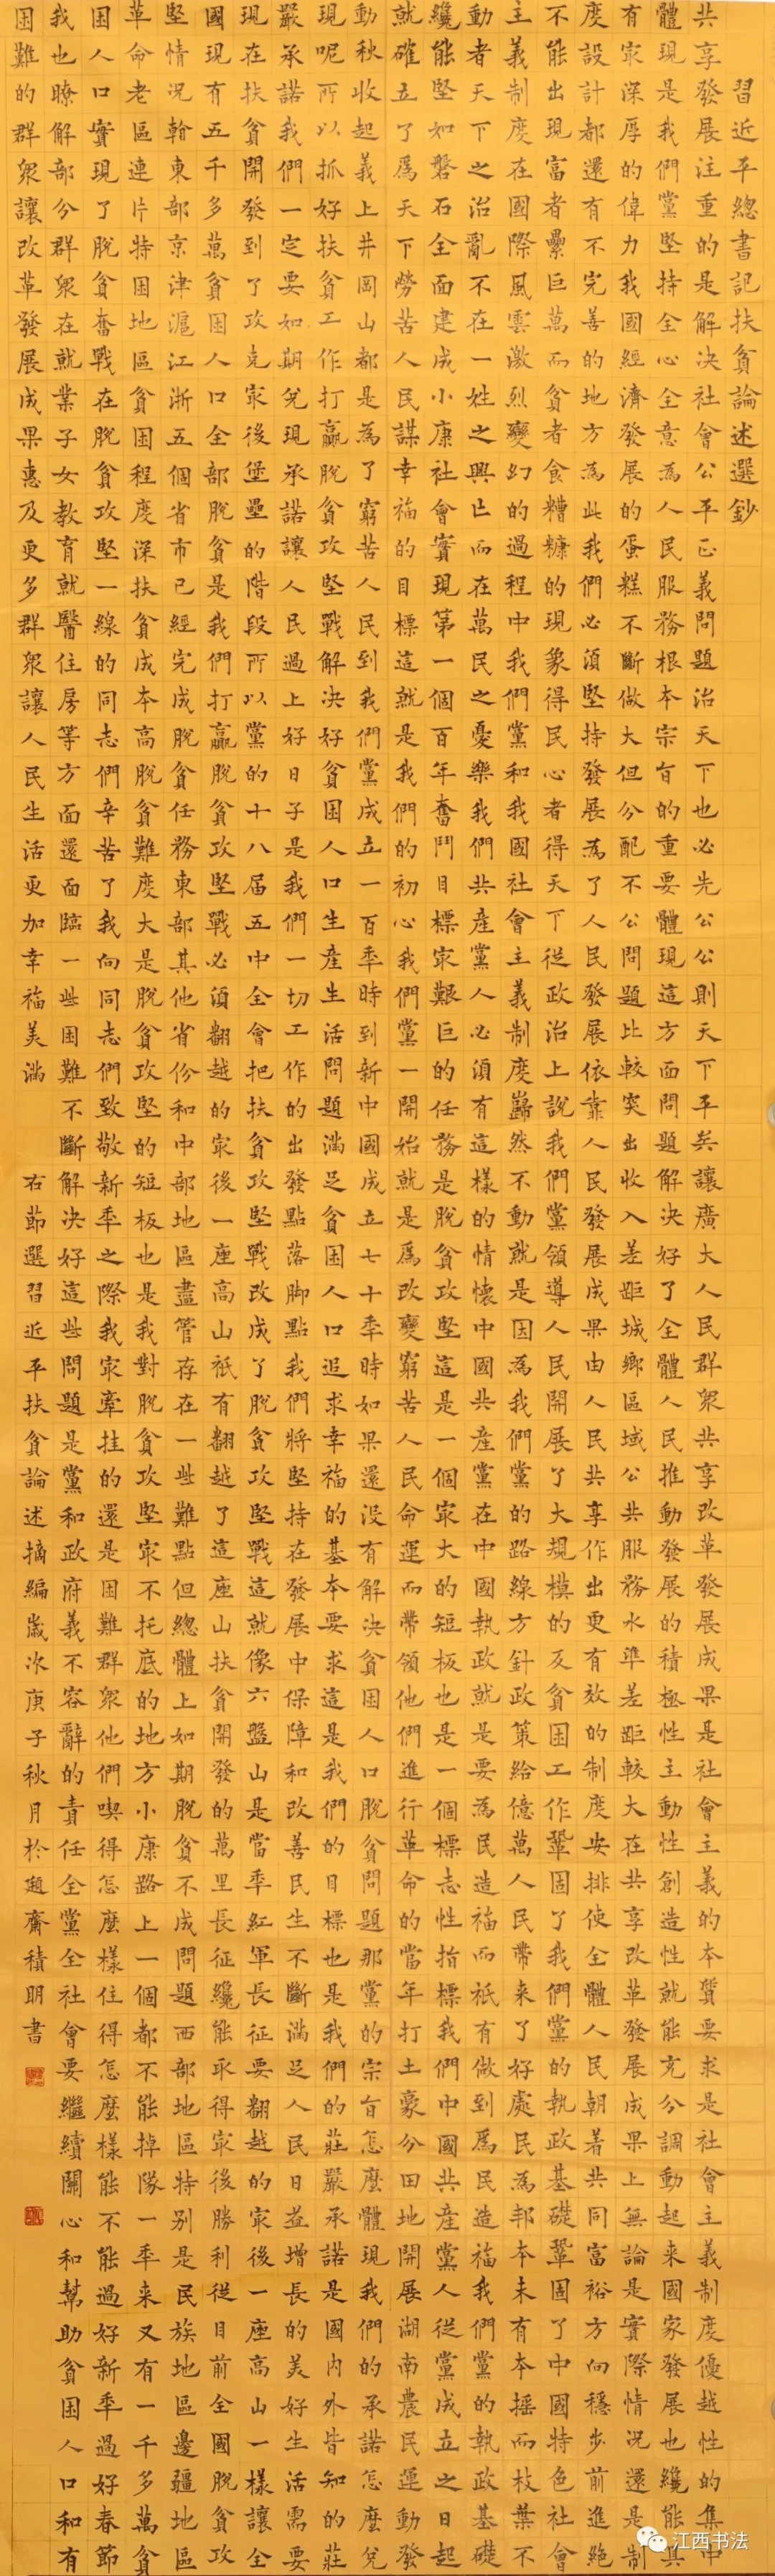 習近平總書記扶貧論述選鈔
共享發展注重的是解決社會公平正義問題治天下也必先公公則天下平矣讓廣大人民群衆共享改革發展成果是社會主義的本質要求是社會主義制度優越性的集中
體現是我們黨堅持全心全意為人民服務根本宗旨的重要體現這方面問題解決好了全體人民推動發展的積極性主動性創造性就能充分調動起来國家發展也纔能具
有冣深厚的偉力我國經濟發展的蛋糕不斷做大但分配不公問題比較突出收入差距城鄉區域公共服務水準差距較大在共享改革發展成果上無論是實際情况還是制
度設計都還有不完善的地方為此我們必須堅持發展為了人民發展依靠人民發展成果由人民共享作出更有效的制度安排使全體人民朝着共同富裕方向穩步前進絶
不能出現富者纍巨萬而貧者食糟糠的現象得民心者得天下從政治上說我們黨領導人民開展了大規模的反貧困工作鞏固了我們黨的執政基礎鞏固了中國特色社會
主義制度在國際風雲激烈變幻的過程中我們黨和我國社會主義制度巋然不動就是因為我們黨的路線方針政策給億萬人民帶来了好處民為邦本未有本摇而枝葉不
動者天下之治亂不在一姓之興亡而在萬民之憂樂我們共産黨人必須有這樣的情懷中國共産黨在中國執政就是要為民造福而衹有做到爲民造福我們黨的執政基礎
纔能堅如磐石全面建成小康社會實現第一個百年奮鬥目標冣艱巨的任務是脫貧攻堅這是一個冣大的短板也是一個標志性指標我們中國共産黨人從黨成立之日起
就確立了爲天下勞苦人民謀幸福的目標這就是我們的初心我們黨一開始就是爲改變窮苦人民命運而帶領他們進行革命的當年打土豪分田地開展湖南農民運動發
動秋收起義上井岡山都是為了窮苦人民到我們黨成立一百年時到新中國成立七十年時如果還没有解決貧困人口脫貧問題那黨的宗旨怎麼體現我們的承諾怎麼兌
現呢所以抓好扶貧工作打贏脫貧攻堅戰解決好貧困人口生産生活問題滿足貧困人口追求幸福的基本要求這是我們的目標也是我們的莊嚴承諾是國內外皆知的莊
嚴承諾我們一定要如期兌現承諾讓人民過上好日子是我們一切工作的出發點落脚點我們將堅持在發展中保障和改善民生不斷滿足人民日益增長的美好生活需要
現在扶貧開發到了攻克冣後堡壘的階段所以黨的十八届五中全會把扶貧攻堅戰改成了脫貧攻堅戰這就像六盤山是當年紅軍長征要翻越的冣後一座高山一樣讓全
國現有五千多萬貧困人口全部脫貧是我們打贏脫貧攻堅戰必須翻越的冣後一座高山衹有翻越了這座山扶貧開發的萬里長征纔能取得冣後勝利從目前全國脫貧攻
堅情况幹東部京津滬江浙五個省市已經完成脫貧任務東部其他省份和中部地區盡管存在一些難點但總體上如期脫貧不成問題西部地區特别是民族地區邊疆地區
革命老區連片特困地區貧困程度深扶貧成本高脫貧難度大是脫貧攻堅的短板也是我對脫貧攻堅冣不托底的地方小康路上一個都不能掉隊一年来又有一千多萬貧
困人口實現了脫貧奮戰在脫貧攻堅一線的同志們辛苦了我向同志們致敬新年之際我冣牽挂的還是困難群衆他們喫得怎麼樣住得怎麼樣能不能過好新年過好春節
我也瞭解部分群衆在就業子女教育就醫住房等方面還面臨一些困難不斷解決好這些問題是黨和政府義不容辭的責任全黨全社會要繼續關心和幫助貧困人口和有
困難的群衆讓改革發展成果惠及更多群衆讓人民生活更加幸福美滿 右節選習近平扶貧論述摘編歲次庚子秋月於齋積明書
江西书法